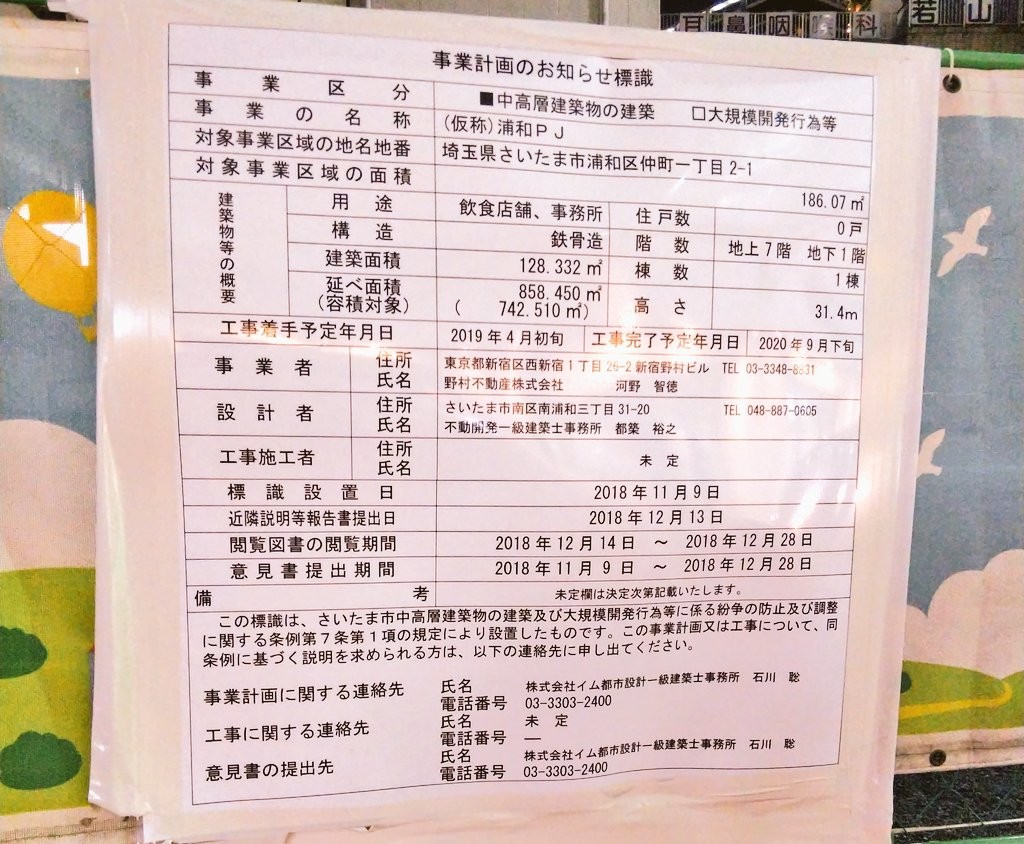 耳鼻咽喉科
若山
事業計画のお知らせ標識
事業区分 ■中高層建築物の建築 □大規模開発行為等
事業の名称 (仮称)浦和PJ
対象事業区域の地名地番 埼玉県さいたま市浦和区仲町一丁目2-1
対象事業区域の面積 186.07㎡
建築物等の概要
用途 飲食店舗、事務所 住戸数 0戸
構造 鉄骨造 階数 地上7階 地下1階
建築面積 128.332㎡ 棟数 1棟
延べ面積 858.450㎡ 高さ 31.4m
(容積対象) ( 742.510㎡)
工事着手予定年月日 2019年4月初旬 工事完了予定年月日 2020年9月下旬
事業者 住所 東京都新宿区西新宿1丁目26-2新宿野村ビル TEL 03-3348-8831
氏名 野村不動産株式会社 河野 智徳
設計者 住所 さいたま市南区南浦和三丁目31-20 TEL 048-887-0605
氏名 不動開発一級建築士事務所 都築 裕之
工事施工者 住所 氏名 未定
標識設置日 2018年11月9日
近隣説明等報告書提出日 2018年12月13日
閲覧図書の閲覧期間 2018年12月14日 ～ 2018年12月28日
意見書提出期間 2018年11月9日 ～ 2018年12月28日
備考 未定欄は決定次第記載いたします。
この標識は、さいたま市中高層建築物の建築及び大規模開発行為等に係る紛争の防止及び調整
に関する条例第7条第1項の規定により設置したものです。この事業計画又は工事について、同
条例に基づく説明を求められる方は、以下の連絡先に申し出てください。
事業計画に関する連絡先 氏名 株式会社イム都市設計一級建築士事務所 石川 聡
電話番号 03-3303-2400
工事に関する連絡先 氏名 未定
電話番号 ―
意見書の提出先 氏名 株式会社イム都市設計一級建築士事務所 石川 聡
電話番号 03-3303-2400